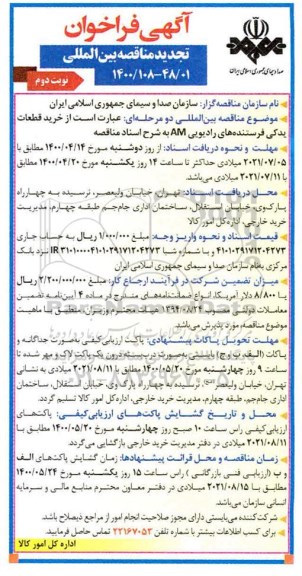 آگهی فراخوان
تجدید مناقصه بین المللی
۱۴۰۰/۱۰۸-۴۸/۰۱
نوبت دوم
صدا و سیمای جمهوری اسلامی ایران
نام سازمان مناقصه گزار: سازمان صدا و سیمای جمهوری اسلامی ایران
موضوع مناقصه بین المللی دو مرحله ای: عبارت است از خرید قطعات
یدکی فرستنده های رادیویی AM به شرح اسناد مناقصه
مهلت و نحوه دریافت اسناد: از روز دوشنبه مورخ ۱۴۰۰/۰۴/۱۴ مطابق با
۲۰۲۱/۰۷/۰۵ میلادی حداکثر تا ساعت ۱۴ روز یکشنبه مورخ ۱۴۰۰/۰۴/۲۰ مطابق
با ۲۰۲۱/۰۷/۱۱ میلادی
محل دریافت اسناد: تهران، خیابان ولیعصر، نرسیده به چهارراه
پارک وی، خیابان استقلال، ساختمان اداری جام جم طبقه چهارم، مدیریت
خرید خارجی، اداره کل امور کالا
قیمت اسناد و نحوه واریز وجه: مبلغ ۱/۰۰۰/۰۰۰ ریال به حساب جاری
۴۱۰۱۰۲۹۱۷۱۲۰۴۲۷۳ و با شماره شبا IR ۳۱۰۱۰۰۰۰۴۱۰۱۰۲۹۱۷۱۲۰۴۲۷۳ نزد بانک
مرکزی بنام سازمان صدا و سیمای جمهوری اسلامی ایران
میزان تضمین شرکت در فرآیند ارجاع کار: مبلغ ۲/۲۰۰/۰۰۰/۰۰۰ ریال
یا ۸/۸۰۰ دلار آمریکا، انواع ضمانت نامه های مندرج در ماده ۴ آیین نامه تضمین
معاملات دولتی
موضوع مناقصه مورد پذیرش می باشد.
مهلت تحویل پاکات پیشنهادی: پاکت ارزیابی کیفی به صورت جداگانه و
پاکات (الف، ب و ج) بایستی به صورت دربسته درون یک پاکت لاک و مهر شده تا
ساعت ۹ روز چهارشنبه مورخ ۱۴۰۰/۰۵/۲۰ مطابق با ۲۰۲۱/۰۸/۱۱ میلادی به نشانی
تهران، خیابان ولیعصر (عج)، نرسیده به چهارراه پارک وی، خیابان استقلال، ساختمان
اداری جام جم، طبقه چهارم، مدیریت خرید خارجی، اداره کل امور کالا تسلیم گردد.
محل و تاریخ گشایش پاکت های ارزیابی کیفی: پاکت های
ارزیابی کیفی راس ساعت ۱۰ صبح روز چهارشنبه مورخ ۱۴۰۰/۰۵/۲۰ مطابق با
۲۰۲۱/۰۸/۱۱ میلادی در دفتر مدیریت خرید خارجی بازگشایی می گردد.
زمان مناقصه و محل قرائت پیشنهادها: زمان گشایش پاکت های الف
و ب (ارزیابی فنی بازرگانی) راس ساعت ۱۵ روز یکشنبه مورخ ۱۴۰۰/۰۵/۲۴
مطابق با ۲۰۲۱/۰۸/۱۵ میلادی در دفتر معاون محترم منابع مالی و سرمایه
انسانی سازمان می باشد.
شرکت کننده می بایستی دارای مجوز صلاحیت انجام امور از مراجع ذیصلاح باشد.
برای کسب اطلاعات بیشتر با شماره تلفن ۲۲۱۶۷۰۵۳ تماس حاصل فرمایید.
اداره کل امور کالا